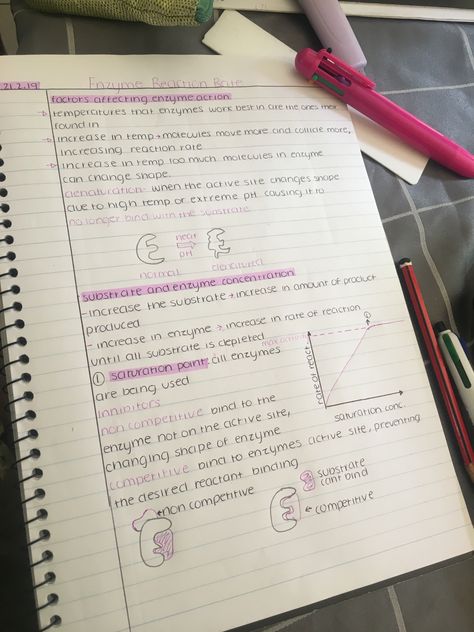 21.2.19
Enzyme Reaction Rate
factors affecting enzyme action
temperatures that enzymes work best in are the ones their
found in
increase in temp → molecules move more and collide more,
increasing reaction rate
increase in temp too much molecules in enzyme
can change shape.
denaturation - when the active site changes shape
due to high temp or extreme pH causing it to
no longer bind with the substrate
heat
pH
normal
denatured
substrate and enzyme concentration
- increase the substrate → increase in amount of product
produced
- increase in enzyme → increase in rate of reaction
until all substrate is depleted
① saturation point: all enzymes
are being used
max
①
rate of react.
saturation conc.
inhibitors
non competitive bind to the
enzyme not on the active site,
changing shape of enzyme
competitive bind to enzymes active site, preventing
the desired reactant binding
← non competitive
substrate
cant bind
← competitive